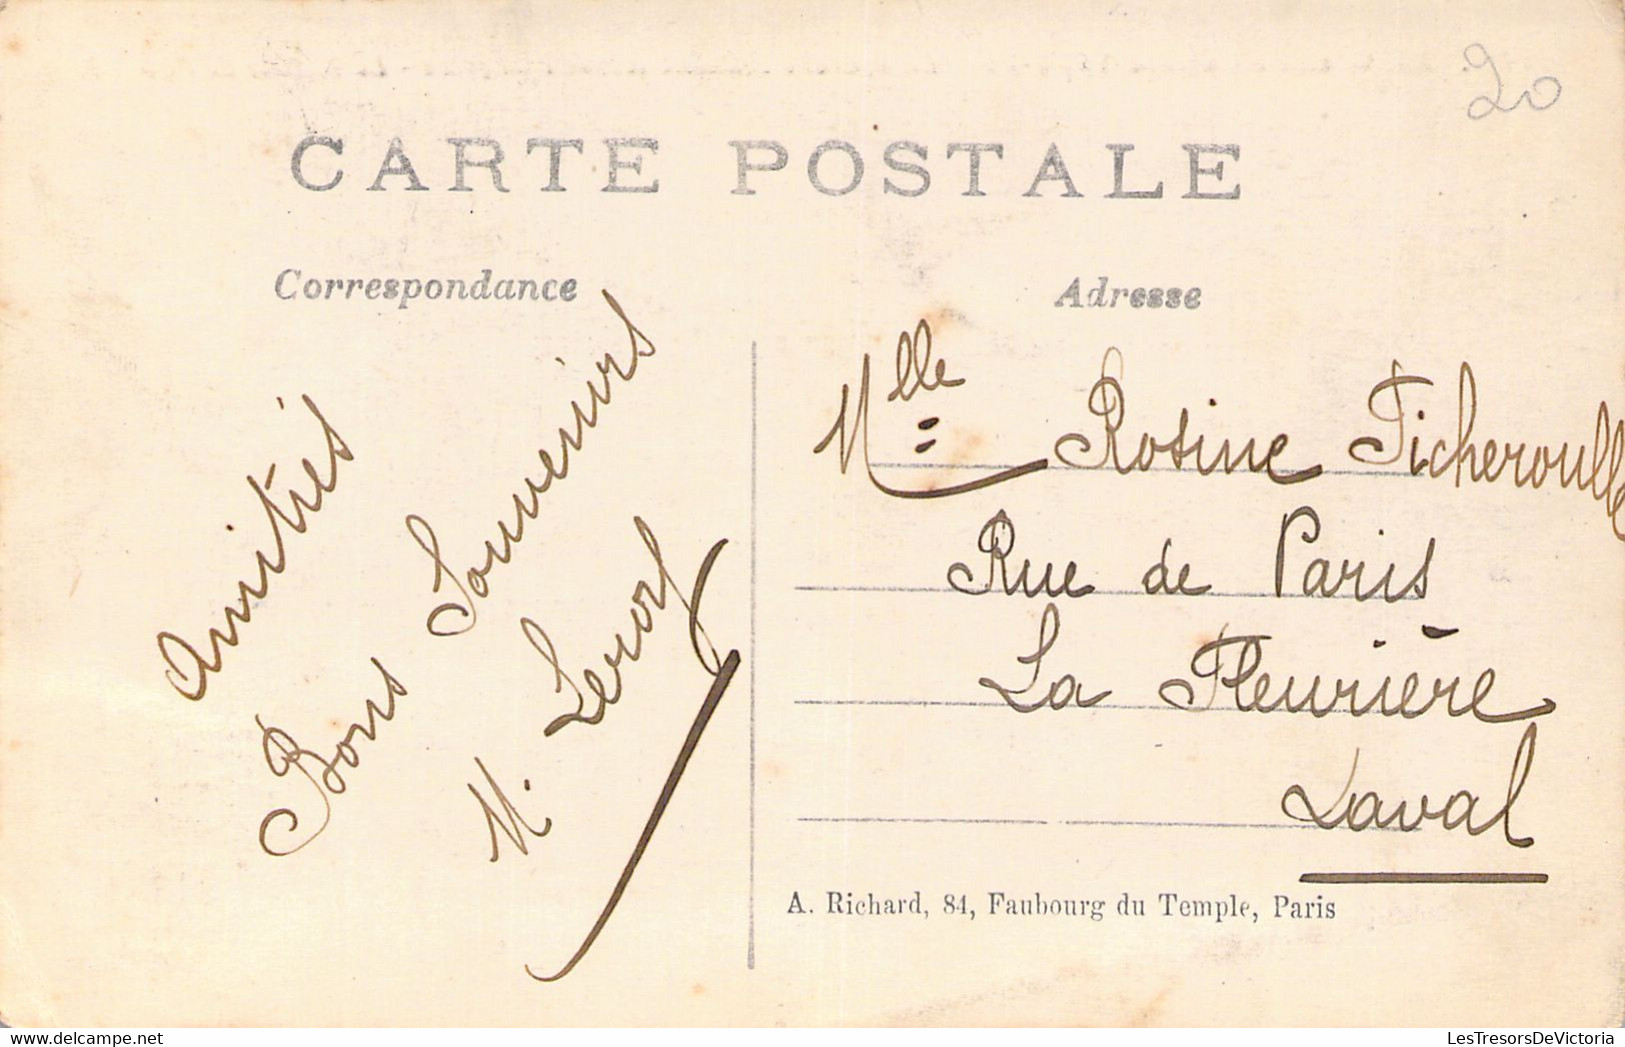 20
CARTE POSTALE
Correspondance
Adresse
Amitiés
Bons Souvenirs
M.
Mlle Rosine Ficheroulle
Rue de Paris
La Fleurière
Laval
A. Richard, 84, Faubourg du Temple, Paris
LesTresorsDeVictoria